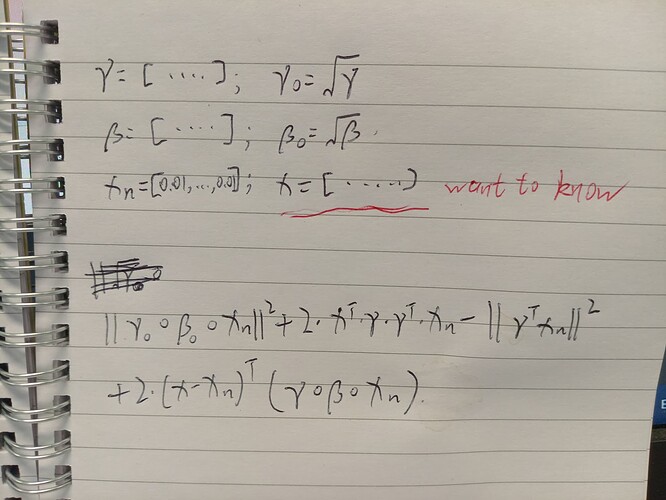 γ = [ ····· ]; γ₀ = √γ
β = [ ····· ]; β₀ = √β.
xₙ = [0.01, ..., 0.01]; x = [ ····· ] want to know
||γ₀∘β₀∘xₙ||² + 2·xᵀ·γ·γᵀ·xₙ - ||γᵀxₙ||²
+2·(x-xₙ)ᵀ(γ∘β∘xₙ).